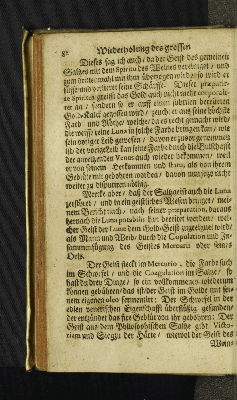 82 Wiederholung des grossen
Dieses sag ich auch / da der Geist des gemeinen
Saltzes mit dem Spiritu des Weines vereiniget / und
zum drittenmahl mit ihm überzogen wird / so wird er
süsse und verlieret seine Schärffe. Dieser præparir-
te Spiritus greifft das Gold auch nicht corporali-
ter an / sondern so er auff einen subtilen bereiteten
Gold-Kalck gegossen wird / zeucht er aus seine höchste
und Röthe / welche / da es recht gemacht wird /
die weisse Luna in solche Farbe bringen kan / wie
sein voriger Leib gewesen / davon er
der vorige Leib kan seine Farbe durch die Buhlschafft
der Venus auch wieder bekommen / weil
er von seinem Herkommen und Stam / als von ihrem
Geblüte mit gebohren worden / davon nicht
weiter zu disputiren nöthig.
Mercke aber / daß der Saltzgeist auch die Luna
zerstöret / und in ein geistliches Wesen bringet / mei-
nem Bericht nach / nach seiner præparation, daraus
hernach die Luna potabilis kan bereitet werden / wel-
cher Geist der Lunæ dem Gold-Geist zugeeignet wird /
als Mann und Weib / durch die Copulation und Zu-
sammenfügung des Geistes Mercurii oder seines
Oels.
Der Geist steckt im Mercurio, die Farbe such
im Schwefel / und die Coagulation im Saltze / so
hast du drey Dinge / so ein vollkommenes wiederum
können gebähren / das ist / der Geist im Golde mit sei-
nem eigenen oleo fermentirt: Der Schwefel in der
edlen venerischen Eigenschafft überflüßig gefunden /
der entzündet das fixe Geblüt von ihr gebohren: Der
Geist aus dem Philosophischen Saltze gibt Victo-
riam und Siegzu der Härte / wiewol der Geist des
Weins